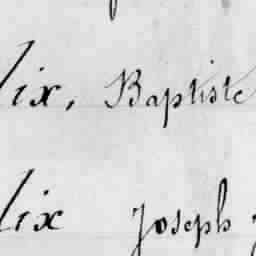 lix, Baptiste
lix Joseph